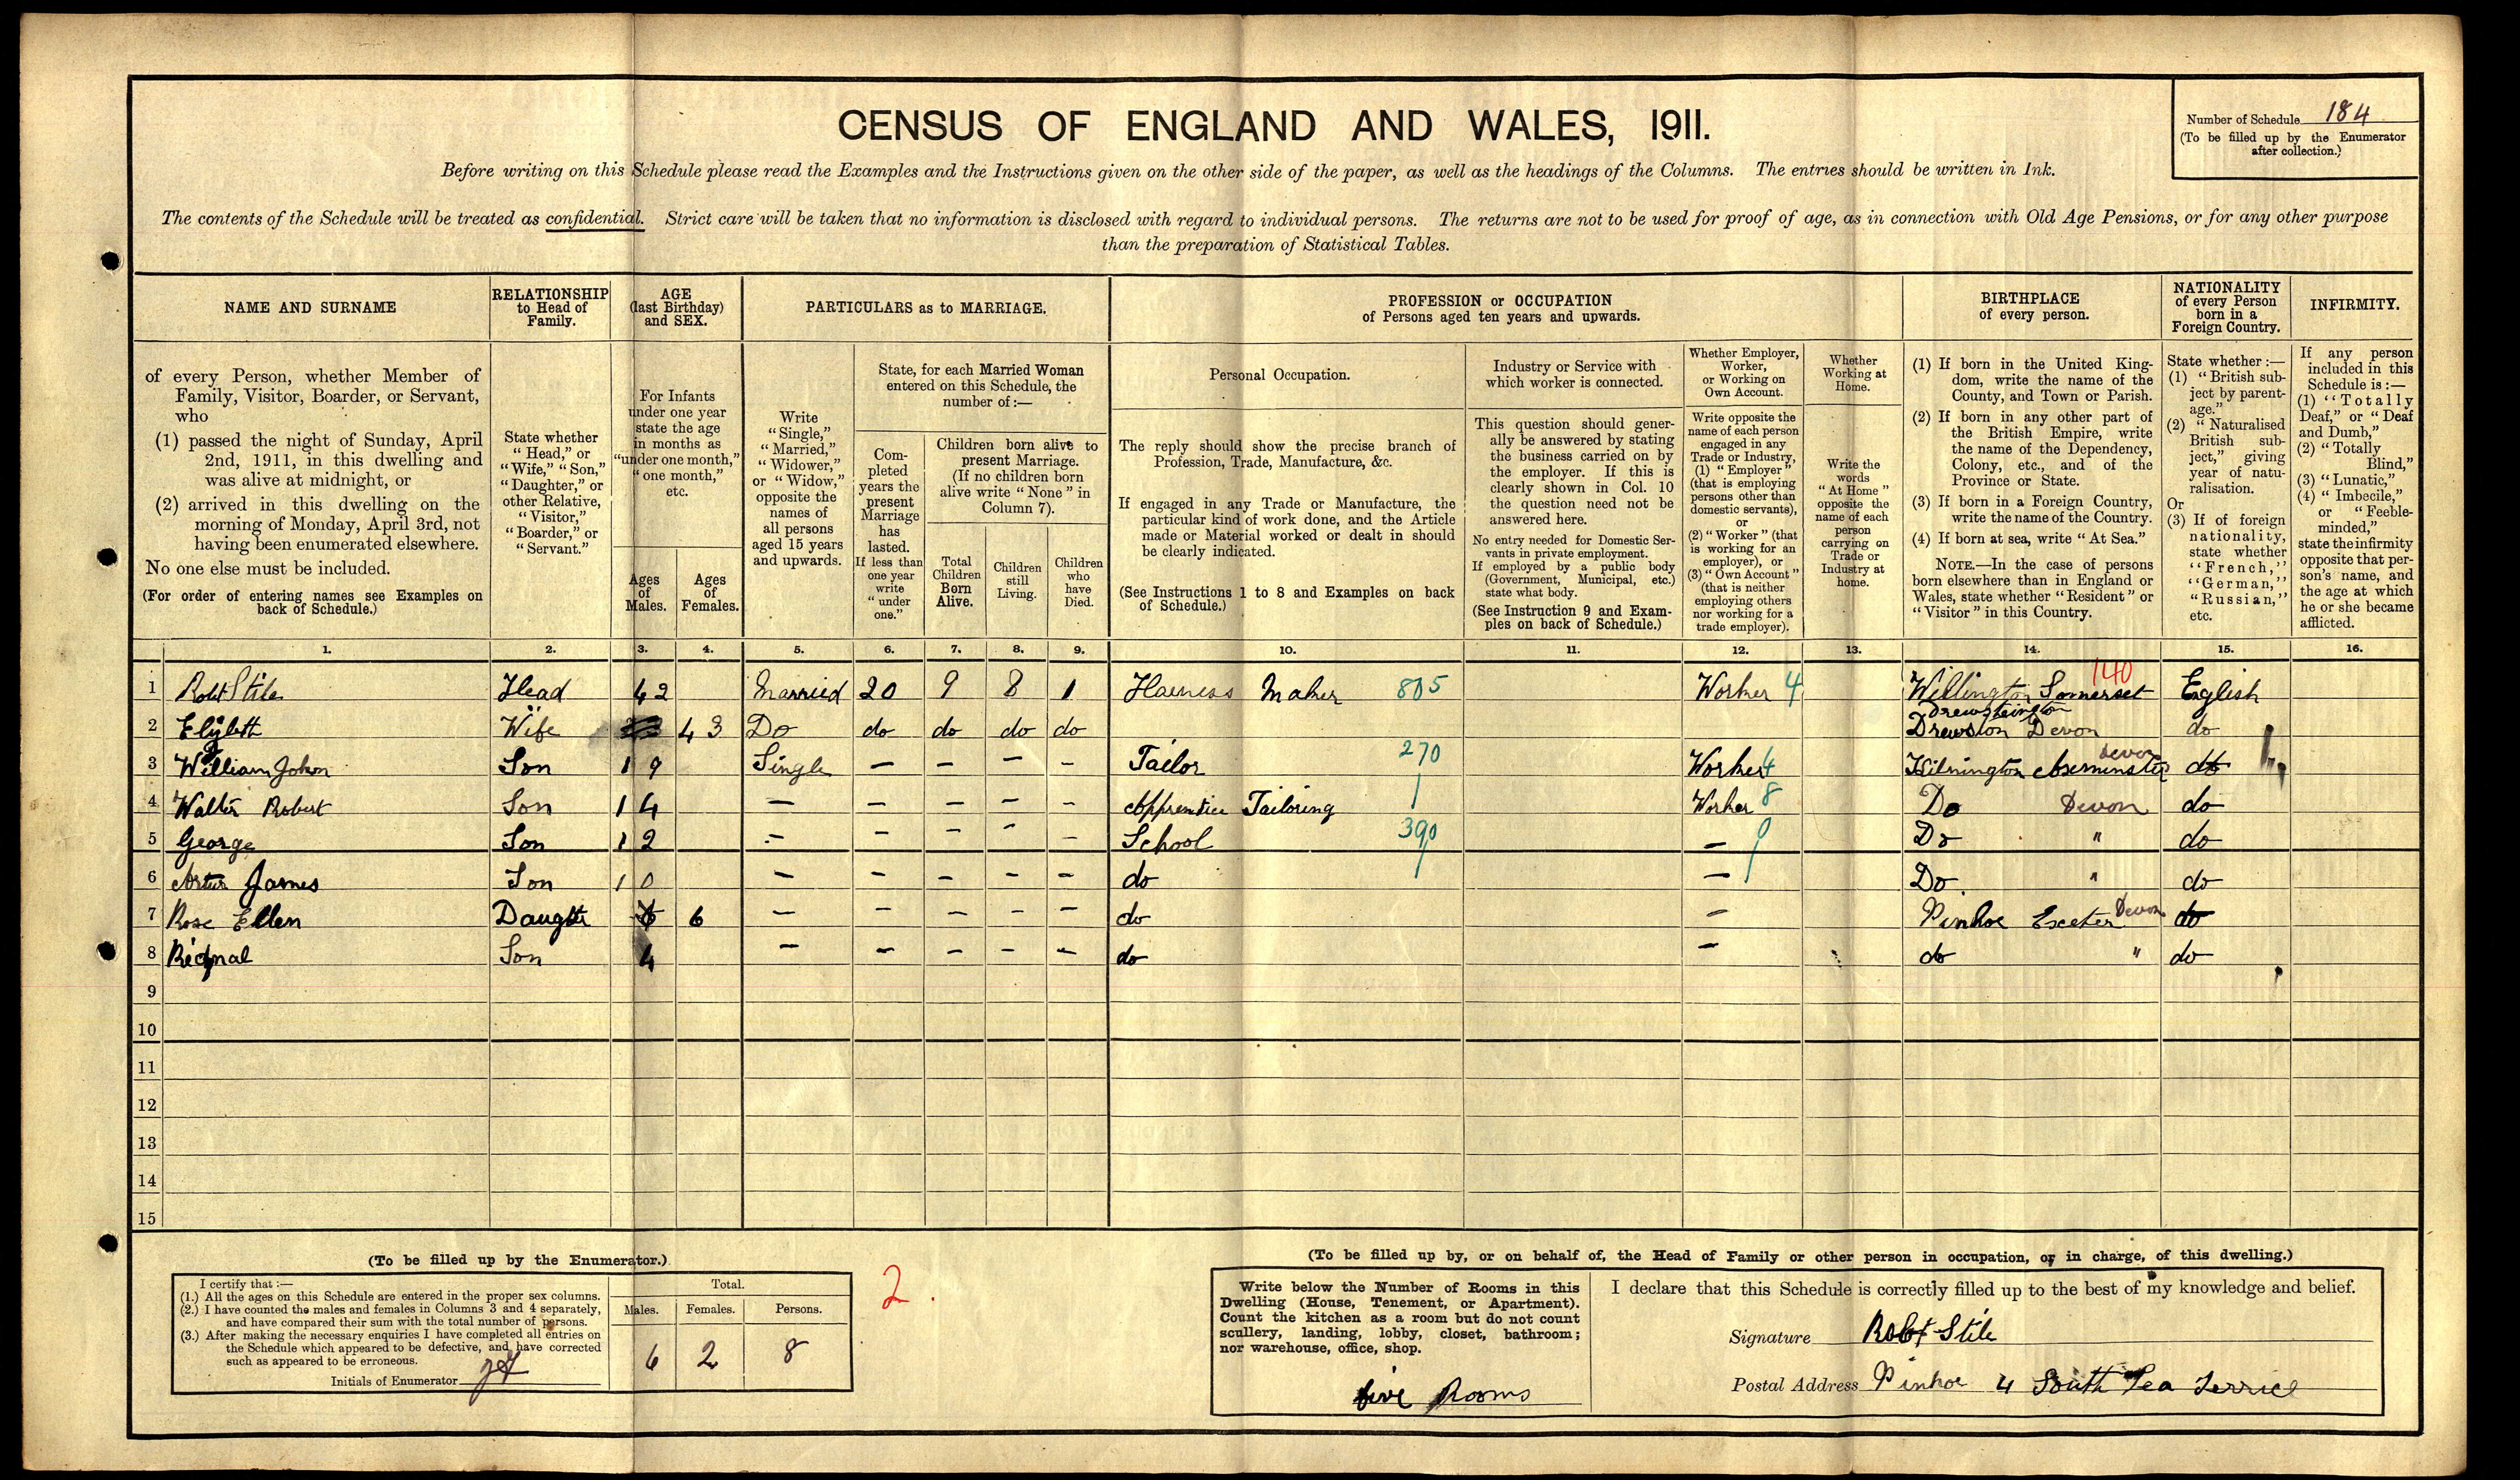 CENSUS OF ENGLAND AND WALES, 1911.
Number of Schedule 184
(To be filled up by the Enumerator
after collection.)
Before writing on this Schedule please read the Examples and the Instructions given on the other side of the paper, as well as the headings of the Columns. The entries should be written in Ink.
The contents of the Schedule will be treated as confidential. Strict care will be taken that no information is disclosed with regard to individual persons. The returns are not to be used for proof of age, as in connection with Old Age Pensions, or for any other purpose
than the preparation of Statistical Tables.
NAME AND SURNAME
of every Person, whether Member of
Family, Visitor, Boarder, or Servant,
who
(1) passed the night of Sunday, April
2nd, 1911, in this dwelling and
was alive at midnight, or
(2) arrived in this dwelling on the
morning of Monday, April 3rd, not
having been enumerated elsewhere.
No one else must be included.
(For order of entering names see Examples on
back of Schedule.)
RELATIONSHIP
to Head of
Family.
State whether
"Head," or
"Wife," "Son,"
"Daughter," or
other Relative,
"Visitor,"
"Boarder," or
"Servant."
AGE
(last Birthday)
and SEX.
For Infants
under one year
state the age
in months as
"under one month,"
"one month,"
etc.
Ages
of
Males.
Ages
of
Females.
PARTICULARS as to MARRIAGE.
Write
"Single,"
"Married,"
"Widower,"
or "Widow,"
opposite the
names of
all persons
aged 15 years
and upwards.
State, for each Married Woman
entered on this Schedule, the
number of:—
Com-
pleted
years the
present
Marriage
has
lasted.
If less than
one year
write
"under
one."
Children born alive to
present Marriage.
(If no children born
alive write "None" in
Column 7).
Total
Children
Born
Alive.
Children
still
Living.
Children
who
have
Died.
PROFESSION or OCCUPATION
of Persons aged ten years and upwards.
Personal Occupation.
The reply should show the precise branch of
Profession, Trade, Manufacture, &c.
If engaged in any Trade or Manufacture, the
particular kind of work done, and the Article
made or Material worked or dealt in should
be clearly indicated.
(See Instructions 1 to 8 and Examples on back
of Schedule.)
Industry or Service with
which worker is connected.
This question should gener-
ally be answered by stating
the business carried on by
the employer. If this is
clearly shown in Col. 10
the question need not be
answered here.
No entry needed for Domestic Ser-
vants in private employment.
If employed by a public body
(Government, Municipal, etc.)
state what body.
(See Instruction 9 and Exam-
ples on back of Schedule.)
Whether Employer,
Worker,
or Working on
Own Account.
Write opposite the
name of each person
engaged in any
Trade or Industry,
(1) "Employer"
(that is employing
persons other than
domestic servants),
or
(2) "Worker" (that
is working for an
employer), or
(3) "Own Account"
(that is neither
employing others
nor working for a
trade employer).
Whether
Working at
Home.
Write the
words
"At Home"
opposite the
name of each
person
carrying on
Trade or
Industry at
home.
BIRTHPLACE
of every person.
(1) If born in the United King-
dom, write the name of the
County, and Town or Parish.
(2) If born in any other part of
the British Empire, write
the name of the Dependency,
Colony, etc., and of the
Province or State.
(3) If born in a Foreign Country,
write the name of the Country.
(4) If born at sea, write "At Sea."
NOTE.—In the case of persons
born elsewhere than in England or
Wales, state whether "Resident" or
"Visitor" in this Country.
NATIONALITY
of every Person
born in a
Foreign Country.
State whether:—
(1) "British sub-
ject by parent-
age."
(2) "Naturalised
British sub-
ject," giving
year of natu-
ralisation.
Or
(3) If of foreign
nationality,
state whether
"French,"
"German,"
"Russian,"
etc.
INFIRMITY.
If any person
included in this
Schedule is:—
(1) "Totally
Deaf," or "Deaf
and Dumb,"
(2) "Totally
Blind,"
(3) "Lunatic,"
(4) "Imbecile,"
or "Feeble-
minded,"
state the infirmity
opposite that per-
son's name, and
the age at which
he or she became
afflicted.
1. 2. 3. 4. 5. 6. 7. 8. 9. 10. 11. 12. 13. 14. 15. 16.
140
1 Robt Stile Head 42 Married 20 9 8 1 Harness Maker 805 Worker 4 Willington Somerset English
Drewsteington
2 Wife 43 Do do do do do Drewston Devon do
3 William John Son 19 Single — — — — Tailor 270 Worker 4 Kilmington Axerminster Devon do
4 Walter Robert Son 14 — — — — — Apprentice Tailoring Worker 8 Do Devon do
5 George Son 12 — — — — — School 390 — 9 Do " do
6 Artur James Son 10 — — — — — do — Do. " do
7 Rose Ellen Daughtr 6 — — — — — do — Pinhoe Exeter Devon do
8 Rignal Son 4 — — — — — do — do " do
9
10
11
12
13
14
15
(To be filled up by the Enumerator.)
I certify that:—
(1.) All the ages on this Schedule are entered in the proper sex columns.
(2.) I have counted the males and females in Columns 3 and 4 separately,
and have compared their sum with the total number of persons.
(3.) After making the necessary enquiries I have completed all entries on
the Schedule which appeared to be defective, and have corrected
such as appeared to be erroneous.
Initials of Enumerator
Total.
Males. Females. Persons.
6 2 8
2.
(To be filled up by, or on behalf of, the Head of Family or other person in occupation, or in charge, of this dwelling.)
Write below the Number of Rooms in this
Dwelling (House, Tenement, or Apartment).
Count the kitchen as a room but do not count
scullery, landing, lobby, closet, bathroom;
nor warehouse, office, shop.
five Rooms
I declare that this Schedule is correctly filled up to the best of my knowledge and belief.
Signature Robt Stile
Postal Address Pinhoe 4 South Lea Terrice